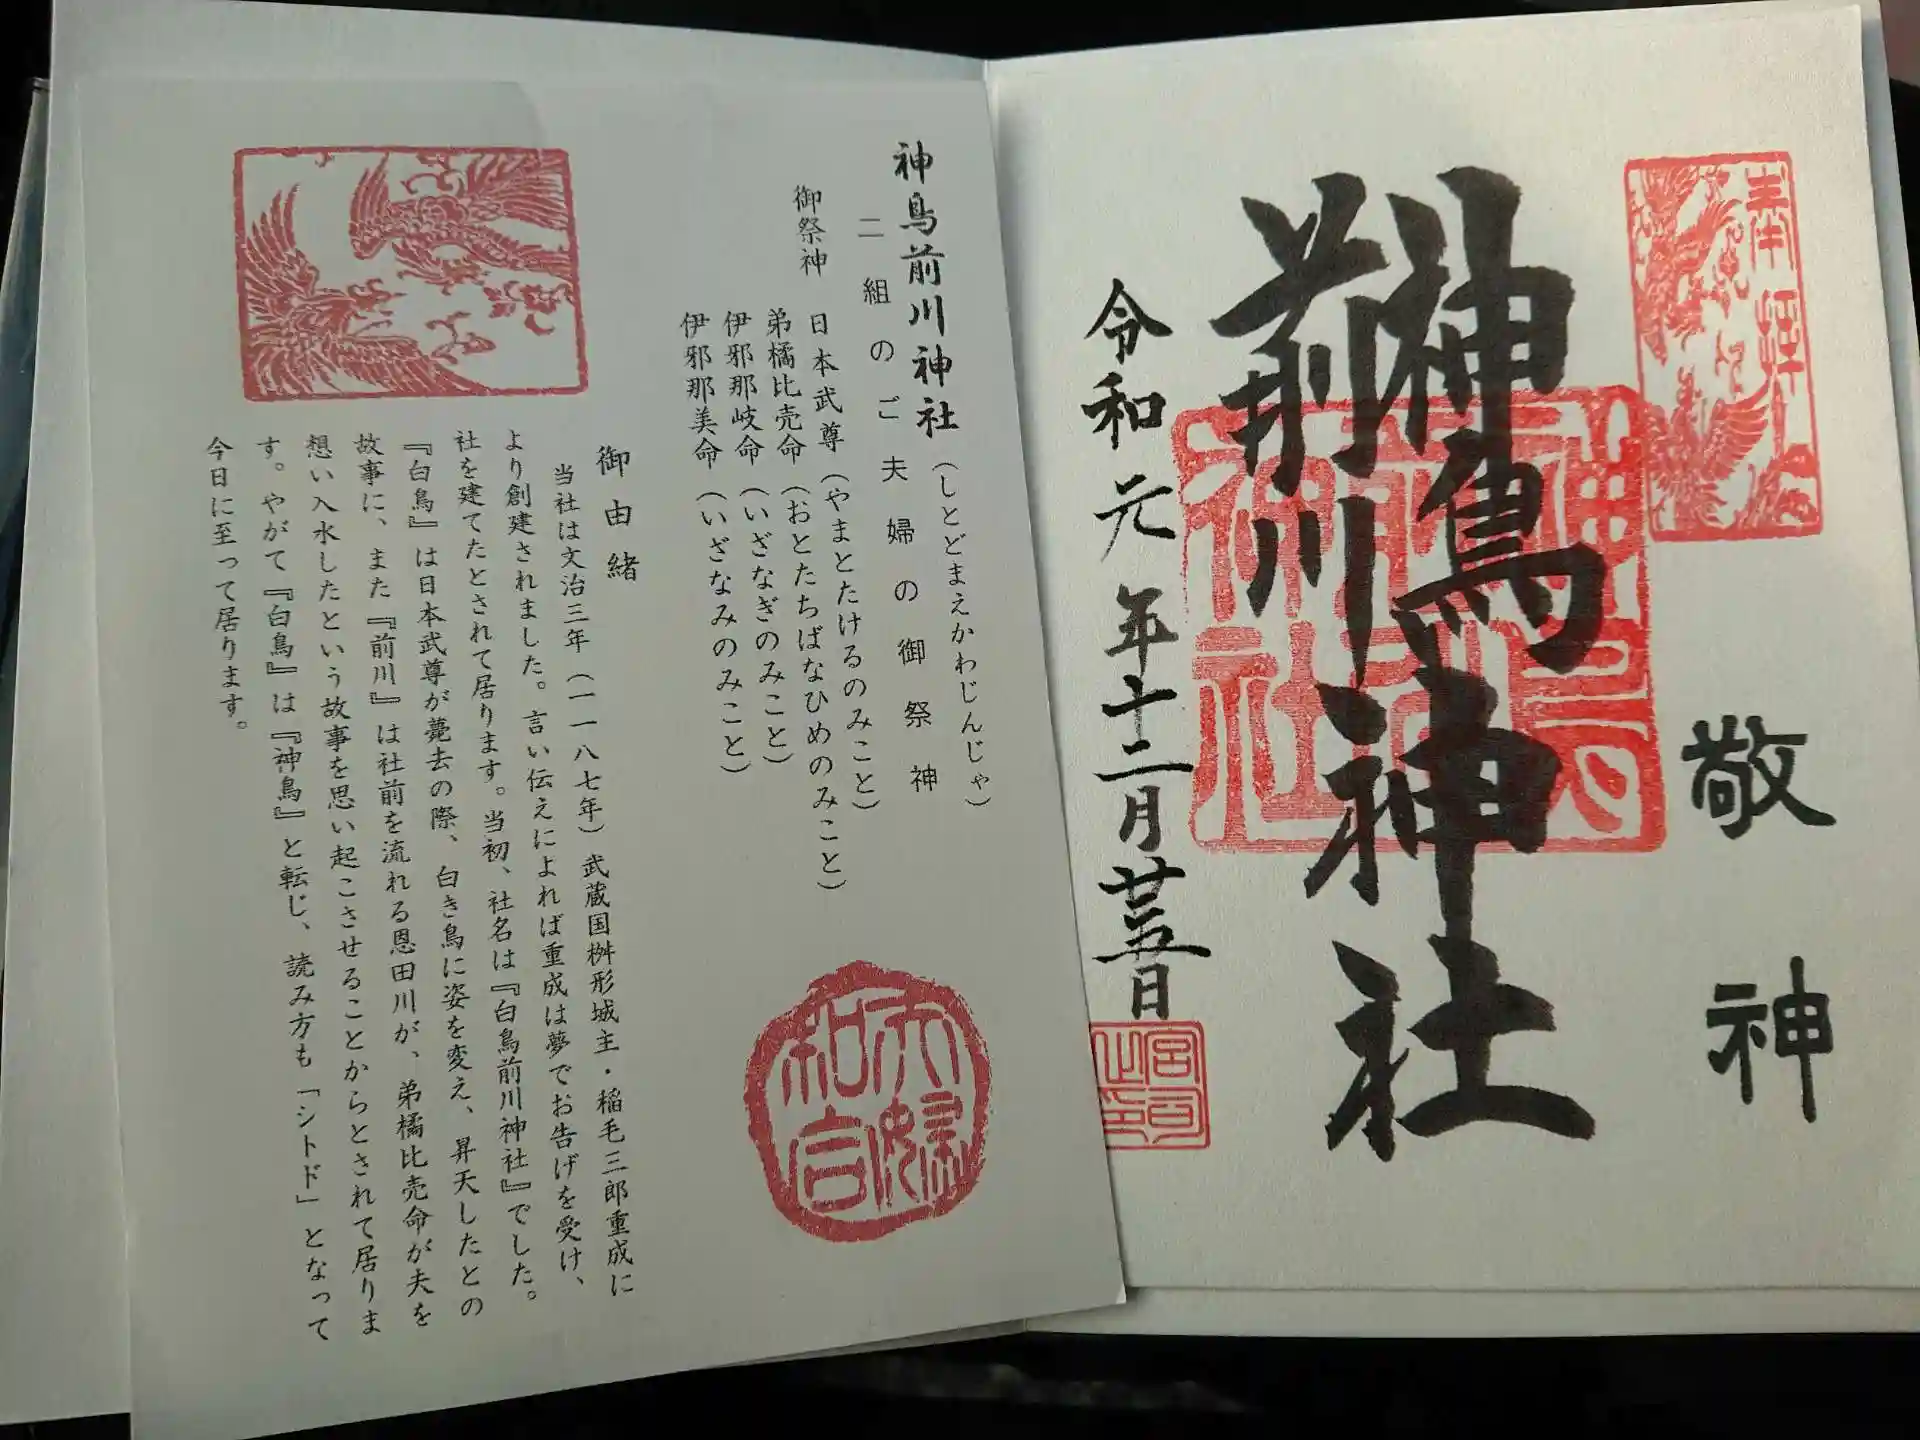 奉拝
敬神
神鳥
前川
神社
令和元年十二月廿五日
宮司之印
神鳥前川神社（しとどまえかわじんじゃ）
二組のご夫婦の御祭神
御祭神 日本武尊（やまとたけるのみこと）
弟橘比売命（おとたちばなひめのみこと）
伊邪那岐命（いざなぎのみこと）
伊邪那美命（いざなみのみこと）
夫婦和合
御由緒
当社は文治三年（一一八七年）武蔵国桝形城主・稲毛三郎重成に
より創建されました。言い伝えによれば重成は夢でお告げを受け、
社を建てたとされて居ります。当初、社名は『白鳥前川神社』でした。
『白鳥』は日本武尊が薨去の際、白き鳥に姿を変え、昇天したとの
故事に、また『前川』は社前を流れる恩田川が、弟橘比売命が夫を
想い入水したという故事を思い起こさせることからとされて居りま
す。やがて『白鳥』は『神鳥』と転じ、読み方も「シトド」となって
今日に至って居ります。